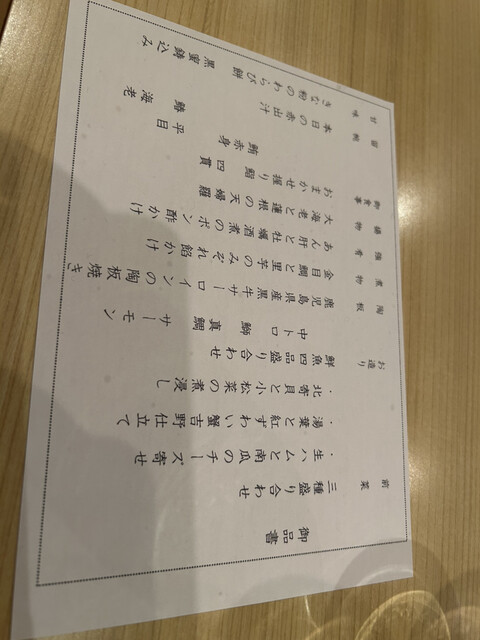 御品書
前菜
三種盛り合わせ
・生ハムと南瓜のチーズ寄せ
・湯葉と紅ずわい蟹吉野仕立て
・北寄貝と小松菜の煮浸し
お造り
鮮魚四品盛り合わせ
中トロ 鰤 真鯛 サーモン
陶板
鹿児島県産黒牛サーロインの陶板焼き
煮物
金目鯛と里芋のみぞれ餡かけ
強肴
あん肝と牡蠣酒煮のポン酢かけ
揚物
大海老と蓮根の天婦羅
御食事
おまかせ握り鮨 四貫
鮪赤身 平目
海老
留椀
本日の赤出汁
甘味
きな粉のわらび餅 黒蜜